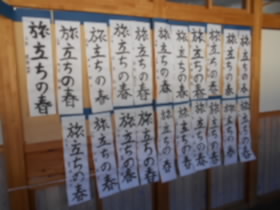 旅立ちの春
旅立ちの春
旅立ちの春
旅立ちの春
旅立ちの春
旅立ちの春
旅立ちの春
旅立ちの春
旅立ちの春
旅立ちの春
旅立ちの春
旅立ちの春
旅立ちの春
旅立ちの春
旅立ちの春
旅立ちの春
旅立ちの春
旅立ちの春
旅立ちの春
旅立ちの春
旅立ちの春